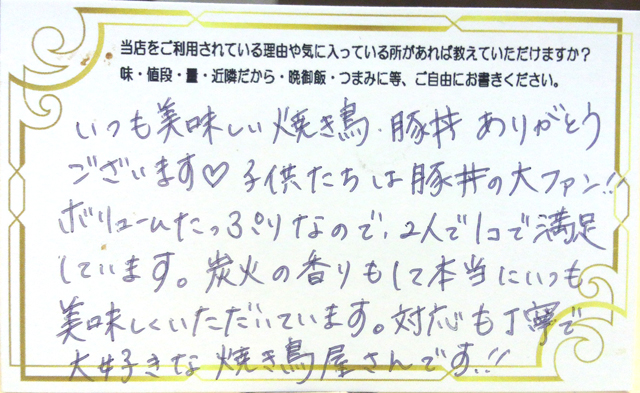 当店をご利用されている理由や気に入っている所があれば教えていただけますか？
味・値段・量・近隣だから・晩御飯・つまみに等、ご自由にお書きください。
いつも美味しい焼き鳥、豚丼 ありがとう
ございます♡子供たちは豚丼の大ファン!!
ボリュームたっぷりなので、2人で1コで満足
しています。炭火の香りもして本当にいつも
美味しくいただいています。対応も丁寧で
大好きな焼き鳥屋さんです!!